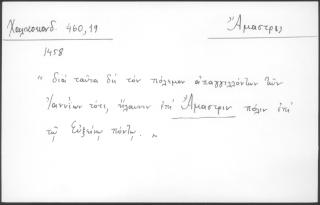 Χαλκοκονδ. 460,19 Ἄμαστρις
1458
" διὰ ταῦτα δὴ τὸν πόλεμον ἀπαγγελλόντων τῶν
Ἰαννίων τότε, ἤλαυνεν ἐπὶ Ἄμαστριν πόλιν ἐπὶ
τῷ Εὐξείνῳ πόντῳ. "